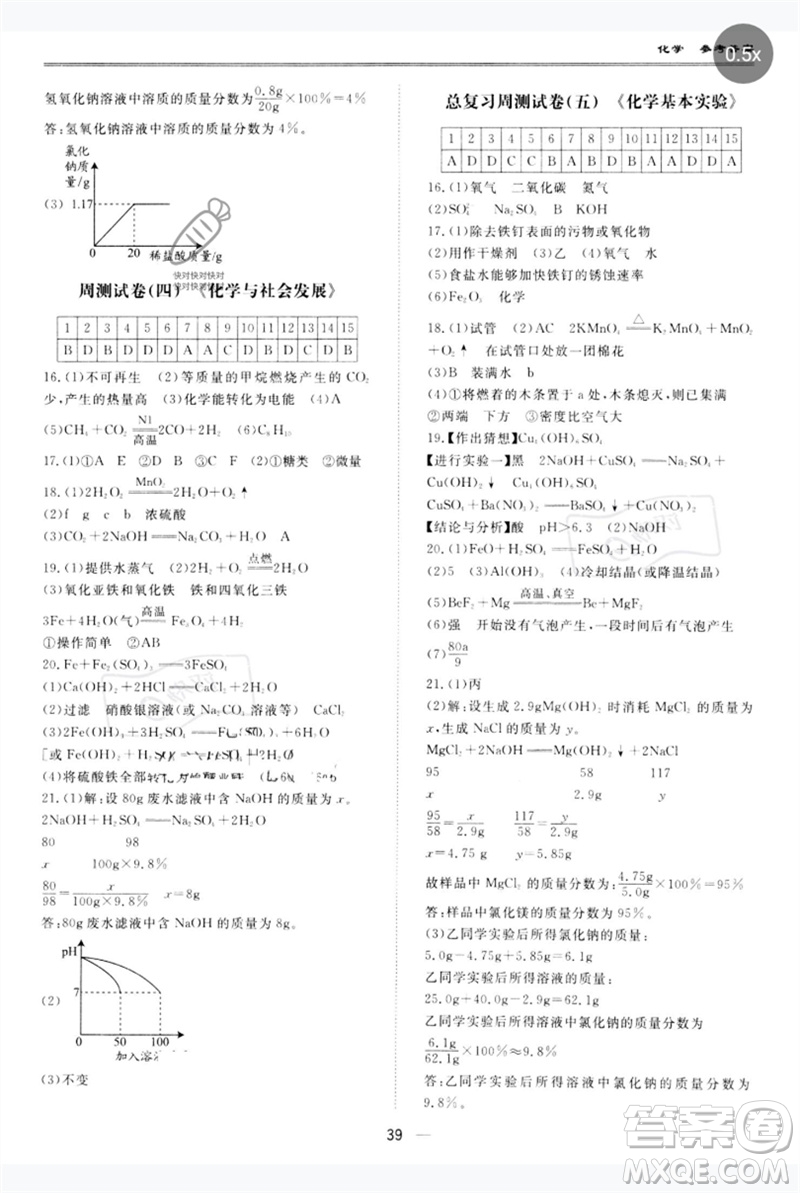 化学
0.5x
氢氧化钠溶液中溶质的质量分数为0.8g/20g×100%=4%
答:氢氧化钠溶液中溶质的质量分数为4%。
(3)
氯化
钠质
量/g
1.17
0 20 稀盐酸质量/g
快对快对快对
快对快对快对
周测试卷(四) 《化学与社会发展》
1 2 3 4 5 6 7 8 9 10 11 12 13 14 15
16.(1)不可再生 (2)等质量的甲烷燃烧产生的CO₂
少,产生的热量高 (3)化学能转化为电能 (4)A
(5)CH₄+CO₂ =N1/高温= 2CO+2H₂ (6)C₈H₁₀
17.(1)①A E ②B (2)①糖类 ②微量
18.(1)2H₂O₂ =MnO₂= 2H₂O+O₂↑
(2)f g c b 浓硫酸
(3)CO₂+2NaOH══Na₂CO₃+H₂O A
19.(1)提供水蒸气 (2)2H₂+O₂ =点燃= 2H₂O
(3)氧化亚铁和氧化铁 铁和四氧化三铁
3Fe+4H₂O(气) =高温= Fe₃O₄+4H₂
①操作简单 ②AB
20.Fe+Fe₂(SO₄)₃══3FeSO₄
(1)Ca(OH)₂+2HCl══CaCl₂+2H₂O
(2)过滤 硝酸银溶液(或Na₂CO₃溶液) CaCl₂
(4)将硫酸铁全部
21.(1)解:设80g废水滤液中含NaOH的质量为x。
2NaOH+H₂SO₄══Na₂SO₄+2H₂O
80 98
x 100g×9.8%
80/98=x/(100g×9.8%) x=8g
答:80g废水滤液中含NaOH的质量为8g。
(2)
pH
7
0 50 100
加入溶液
(3)不变
总复习周测试卷(五) 《化学基本实验》
1 2 3 4 5 6 7 8 9 10 11 12 13 14 15
A D D C C B A B D B A A D D D
16.(1)氧气 二氧化碳 氢气
(2)SO₄²⁻ Na₂SO₄ B KOH
17.(1)除去铁钉表面的污物或氧化物
(2)用作干燥剂 (3)乙 (4)氧气 水
(5)食盐水能够加快铁钉的锈蚀速率
(6)Fe₂O₃ 化学
18.(1)试管 (2)AC 2KMnO₄ =△= K₂MnO₄+
MnO₂+O₂↑ 在试管口处放一团棉花
(3)B 装满水 b
(4)①将燃着的木条置于a处,木条熄灭,则已集满
②两端 下方 ③密度比空气大
19.【作出猜想】Cu₂(OH)₂SO₄
【进行实验一】黑 2NaOH+CuSO₄══Na₂SO₄+
Cu(OH)₂↓
CuSO₄+Ba(NO₃)₂══BaSO₄↓+Cu(NO₃)₂
【结论与分析】酸 pH>6.3 (2)NaOH
20.(1)FeO+H₂SO₄══FeSO₄+H₂O
(2)5 (3)Al(OH)₃ (4)冷却结晶(或降温结晶)
(5)BeF₂+Mg =高温、真空= Be+MgF₂
(6)强 开始没有气泡产生,一段时间后有气泡产生
(7)80a/9
21.(1)丙
(2)解:设生成2.9gMg(OH)₂时消耗MgCl₂的质量为
x,生成NaCl的质量为y。
MgCl₂+2NaOH══Mg(OH)₂↓+2NaCl
95 58 117
x 2.9g y
95/58=x/2.9g 117/58=y/2.9g
x=4.75g y=5.85g
故样品中MgCl₂的质量分数为4.75g/5.0g×100%=95%
答:样品中氯化镁的质量分数为95%。
(3)乙同学实验后所得氯化钠的质量:
5.0g-4.75g+5.85g=6.1g
乙同学实验后所得溶液的质量:
25.0g+40.0g-2.9g=62.1g
乙同学实验后所得溶液中氯化钠的质量分数为
6.1g/62.1g×100%≈9.8%
答:乙同学实验后所得溶液中氯化钠的质量分数为
9.8%。
39
答案卷
MXQE.COM